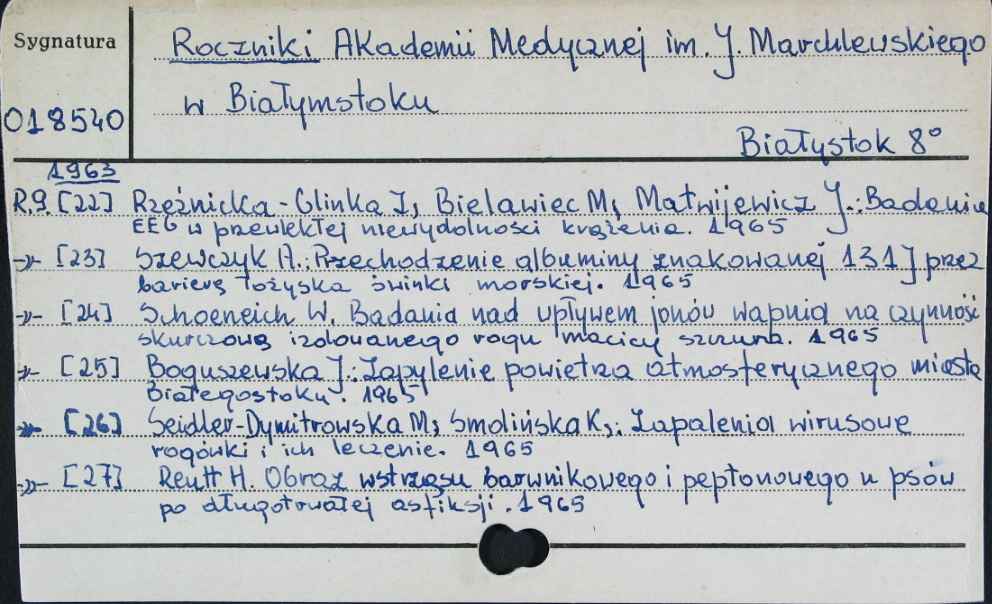 Sygnatura
Roczniki Akademii Medycznej im. J. Marchlewskiego
w Białymstoku
018540
Białystok 8°
1963
R.9. [22] Rzeźnicka-Glinka J, Bielawiec M, Matwijewicz J.: Badania
EEG w przewlekłej niewydolności krążenia. 1965
-"- [23] Szewczyk A.: Przechodzenie albuminy znakowanej 131J przez
barierę łożyska świnki morskiej. 1965
-"- [24] Schoeneich W. Badania nad wpływem jonów wapnia na czynność
skurczową izolowanego rogu macicy szczura. 1965
-"- [25] Boguszewska J.: Zapylenie powietrza atmosferycznego miasta
Białegostoku. 1965
-"- [26] Seidler-Dymitrowska M, Smolińska K,: Zapalenia wirusowe
rogówki i ich leczenie. 1965
-"- [27] Reutt H. Obraz wstrząsu barwnikowego i peptonowego u psów
po długotrwałej asfiksji. 1965